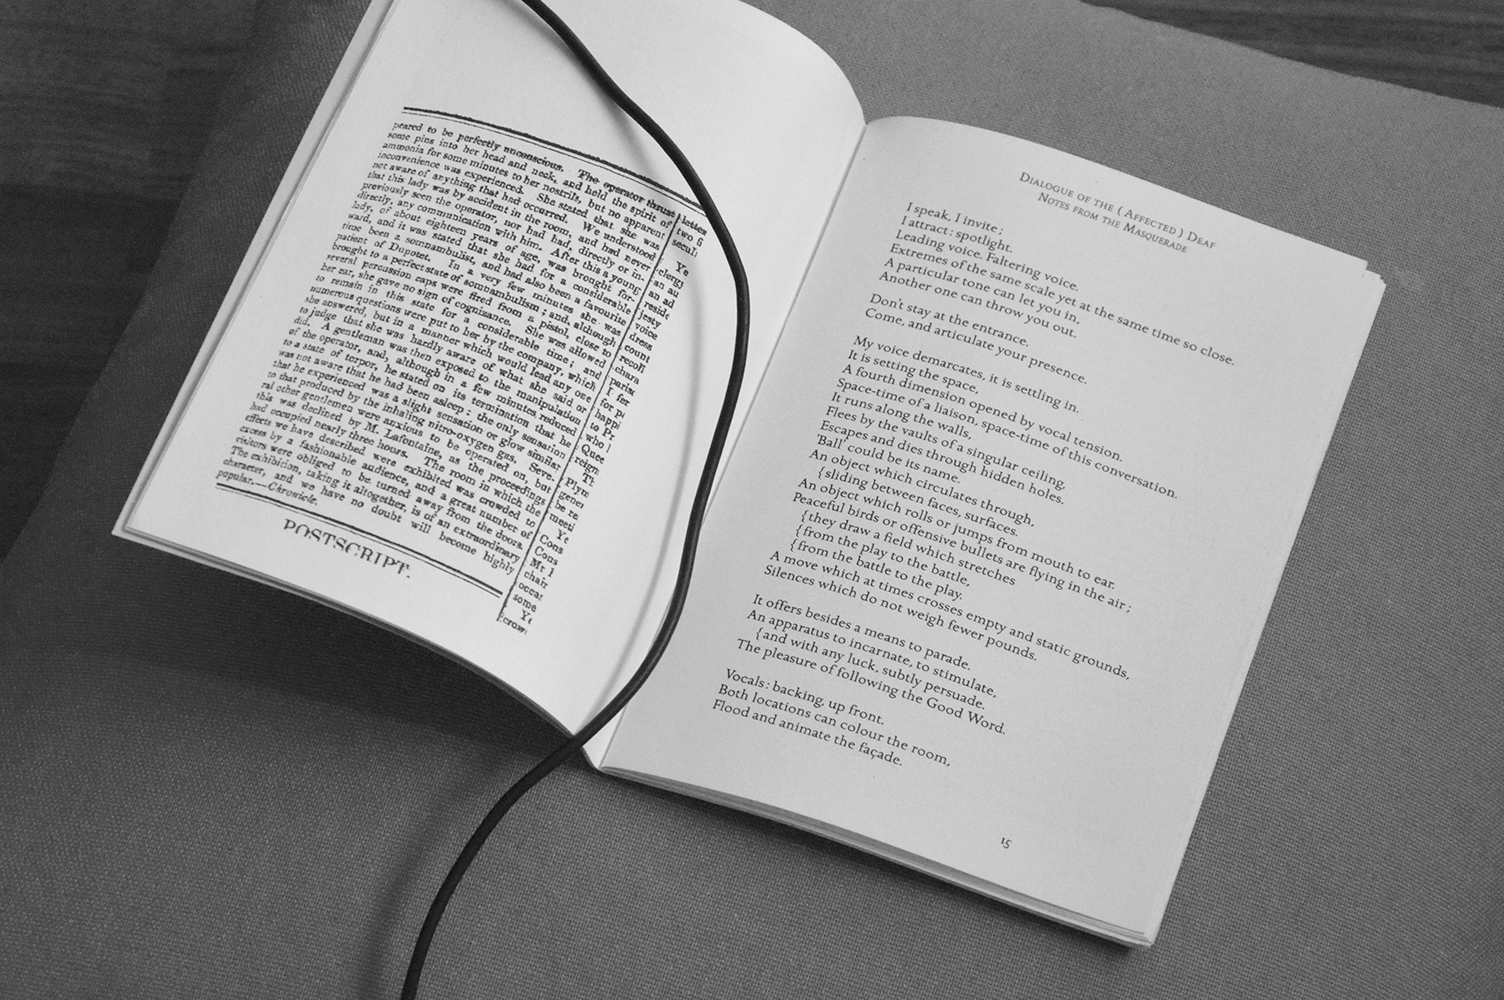 peared to be perfectly unconscious. The operator thrust
some pins into her head and neck, and held the spirit of
ammonia for some minutes to her nostrils, but no apparent
inconvenience was experienced. She stated that she was
not aware of anything that had occurred. We understood
that this lady was by accident in the room, and had never
previously seen the operator, nor had had, directly or in-
directly, any communication with him. After this a young
lady, of about eighteen years of age, was brought for-
ward, and it was stated that she had for a considerable
time been a somnambulist, and had also been a favourite
patient of Dupotet. In a very few minutes she was
brought to a perfect state of somnambulism; and, although
several percussion caps were fired from a pistol, close to
her ear, she gave no sign of cognizance. She was allowed
to remain in this state for a considerable time; and
numerous questions were put to her by the company, which
she answered, but in a manner which would lead any one
to judge that she was hardly aware of what she said or
did. A gentleman was then exposed to the manipulation
of the operator, and, although in a few minutes reduced
to a state of torpor, he stated on its termination that he
was not aware that he had been asleep: the only sensation
that he experienced was a slight sensation or glow similar
to that produced by the inhaling nitro-oxygen gas. Seve-
ral other gentlemen were anxious to be operated on, but
this was declined by M. Lafontaine, as the proceedings
had occupied nearly three hours. The room in which the
effects we have described were exhibited was crowded to
excess by a fashionable audience, and a great number of
visitors were obliged to be turned away from the doors.
The exhibition, taking it altogether, is of an extraordinary
character, and we have no doubt will become highly
popular.—Chronicle.
POSTSCRIPT.
letter
two
Ye
clergy
an au
an ad
reside
jesty
voice
dress
count
recoll
chara
I fer
for
happi
to Pr
who
Quee
reign
Th
Plym
gener
be re
meeti
Ye
Cons
Cons
Mr
chair
occas
some
Ye
crow
DIALOGUE OF THE ( AFFECTED ) DEAF
NOTES FROM THE MASQUERADE
I speak, I invite ;
I attract : spotlight.
Leading voice. Faltering voice.
Extremes of the same scale yet at the same time so close.
A particular tone can let you in,
Another one can throw you out.
Don't stay at the entrance.
Come, and articulate your presence.
My voice demarcates, it is settling in.
It is setting the space,
A fourth dimension opened by vocal tension.
Space-time of a liaison, space-time of this conversation.
It runs along the walls,
Flees by the vaults of a singular ceiling,
Escapes and dies through hidden holes.
'Ball' could be its name.
An object which circulates through,
{sliding between faces, surfaces.
An object which rolls or jumps from mouth to ear.
Peaceful birds or offensive bullets are flying in the air ;
{they draw a field which stretches
{from the play to the battle,
{from the battle to the play.
A move which at times crosses empty and static grounds,
Silences which do not weigh fewer pounds.
It offers besides a means to parade.
An apparatus to incarnate, to stimulate,
{and with any luck, subtly persuade.
The pleasure of following the Good Word.
Vocals : backing, up front.
Both locations can colour the room,
Flood and animate the façade.
15